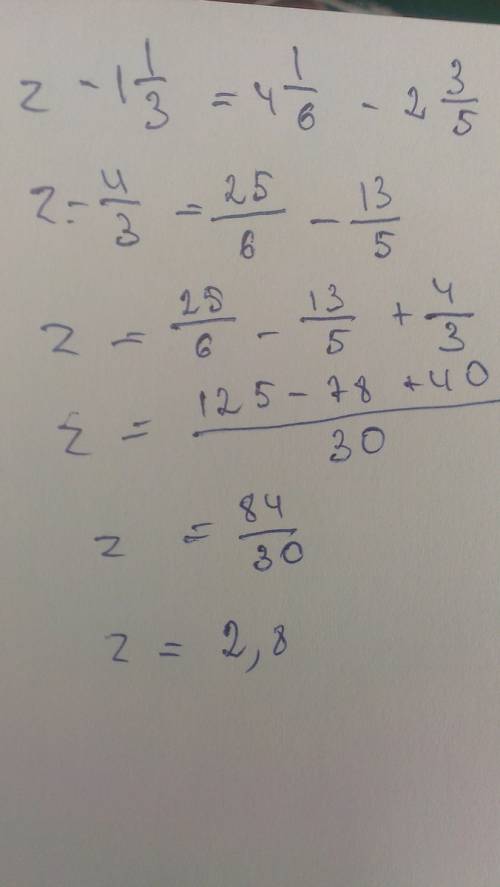 z - 1 1/3 = 4 1/6 - 2 3/5
z - 4/3 = 25/6 - 13/5
z = 25/6 - 13/5 + 4/3
z = (125 - 78 + 40)/30
z = 84/30
z = 2,8